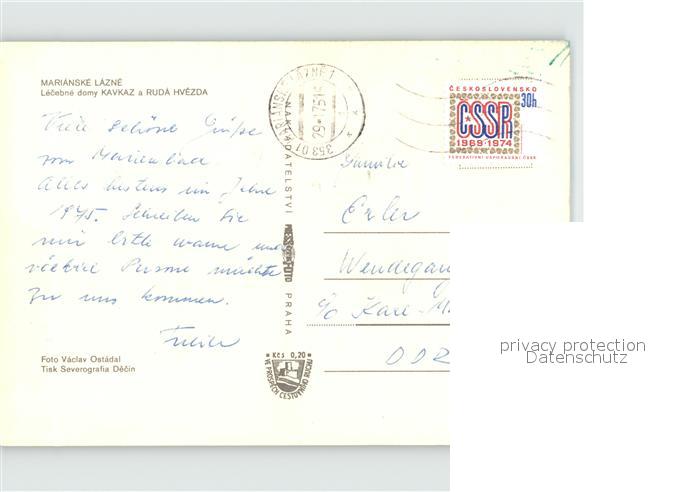 MARIÁNSKÉ LÁZNĚ
Léčebné domy KAVKAZ a RUDÁ HVĚZDA
Viele schöne Grüße
von Marienbad
Alles bestens im Jahre
1975. Schreiben Sie
mir bitte wann und
Persone möchte
zu uns kommen.
Foto Václav Ostádal
Tisk Severografia Děčín
NAKLADATELSTVÍ PRESSFOTO PRAHA
Kčs 0,20
VE PROSPĚCH CESTOVNÍHO RUCHU
MARIÁNSKÉ LÁZNĚ 1
353 01
ČESKOSLOVENSKO
30h
ČSSR
1969·1974
FEDERATIVNÍ USPOŘÁDÁNÍ ČSSR
Familie
Exler
c/o Karl
DDR
privacy protection
Datenschutz